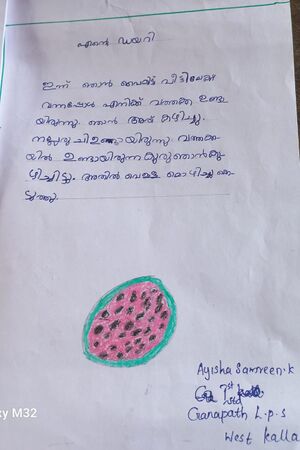 എന്റെ ഡയറി
ഇന്ന് ഞാൻ വൈകിട്ട് വീട്ടിലേക്ക്
വന്നപ്പോൾ എനിക്ക് വത്തക്ക ഉണ്ടാ
യിരുന്നു. ഞാൻ അത് കഴിച്ചു.
നല്ലരുചിഉണ്ടായിരുന്നു. വത്തക്ക
യിൽ ഉണ്ടായിരുന്ന കുരു ഞാൻ കു
ഴിച്ചിട്ടു. അതിൽ വെള്ളം ഒഴിച്ചു കൊ
ടുത്തു.
Ayisha Samreen.k
1st
std
Ganapath L.p.s
West kalla
ky M32